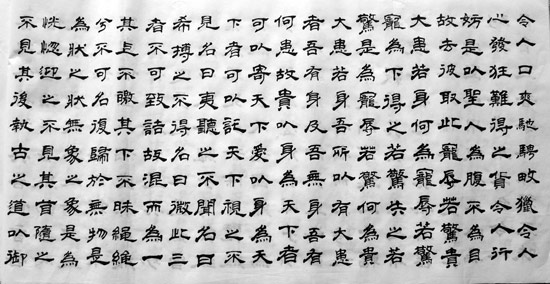 令人口爽馳騁畋獵令人
心發狂難得之貨令人行
妨是以聖人為腹不為目
故去彼取此寵辱若驚貴
大患若身何為寵辱若驚
寵為下得之若驚失之若
驚是為寵辱若驚何為貴
大患若身吾所以有大患
者吾有身及吾無身吾有
何患故貴以身為天下者
可以寄天下愛以身為天
下者可以託天下視之不
見名曰夷聽之不聞名曰
希搏之不得名曰微此三
者不可致詰故混而為一
其上不皦其下不昧繩繩
兮不可名復歸於無物是
為狀之狀無象之象是為
恍惚迎之不見其首隨之
不見其後執古之道以御